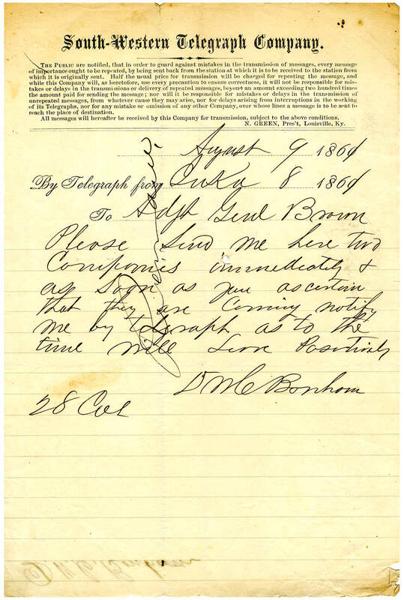 South-Western Telegraph Company.
THE PUBLIC are notified, that in order to guard against mistakes in the transmission of messages, every message
of importance ought to be repeated, by being sent back from the station at which it is to be received to the station from
which it is originally sent. Half the usual price for transmission will be charged for repeating the message, and
while this Company will, as heretofore, use every precaution to ensure correctness, it will not be responsible for mis-
takes or delays in the transmission or delivery of repeated messages, beyond an amount exceeding two hundred times
the amount paid for sending the message; nor will it be responsible for mistakes or delays in the transmission of
unrepeated messages, from whatever cause they may arise, nor for delays arising from interruptions in the working
of its Telegraphs, nor for any mistake or omission of any other Company, over whose lines a message is to be sent to
reach the place of destination.
All messages will hereafter be received by this Company for transmission, subject to the above conditions.
N. GREEN, Pres't, Louisville, Ky.
August 9 1864
By Telegraph from Iuka 8 1864
To Adjt Genl Brown
Please send me here two
Companies immediately &
as soon as you ascertain
that they are coming notify
me by telegraph as to the
time will leave Positively
D M C Bonham
28 Col